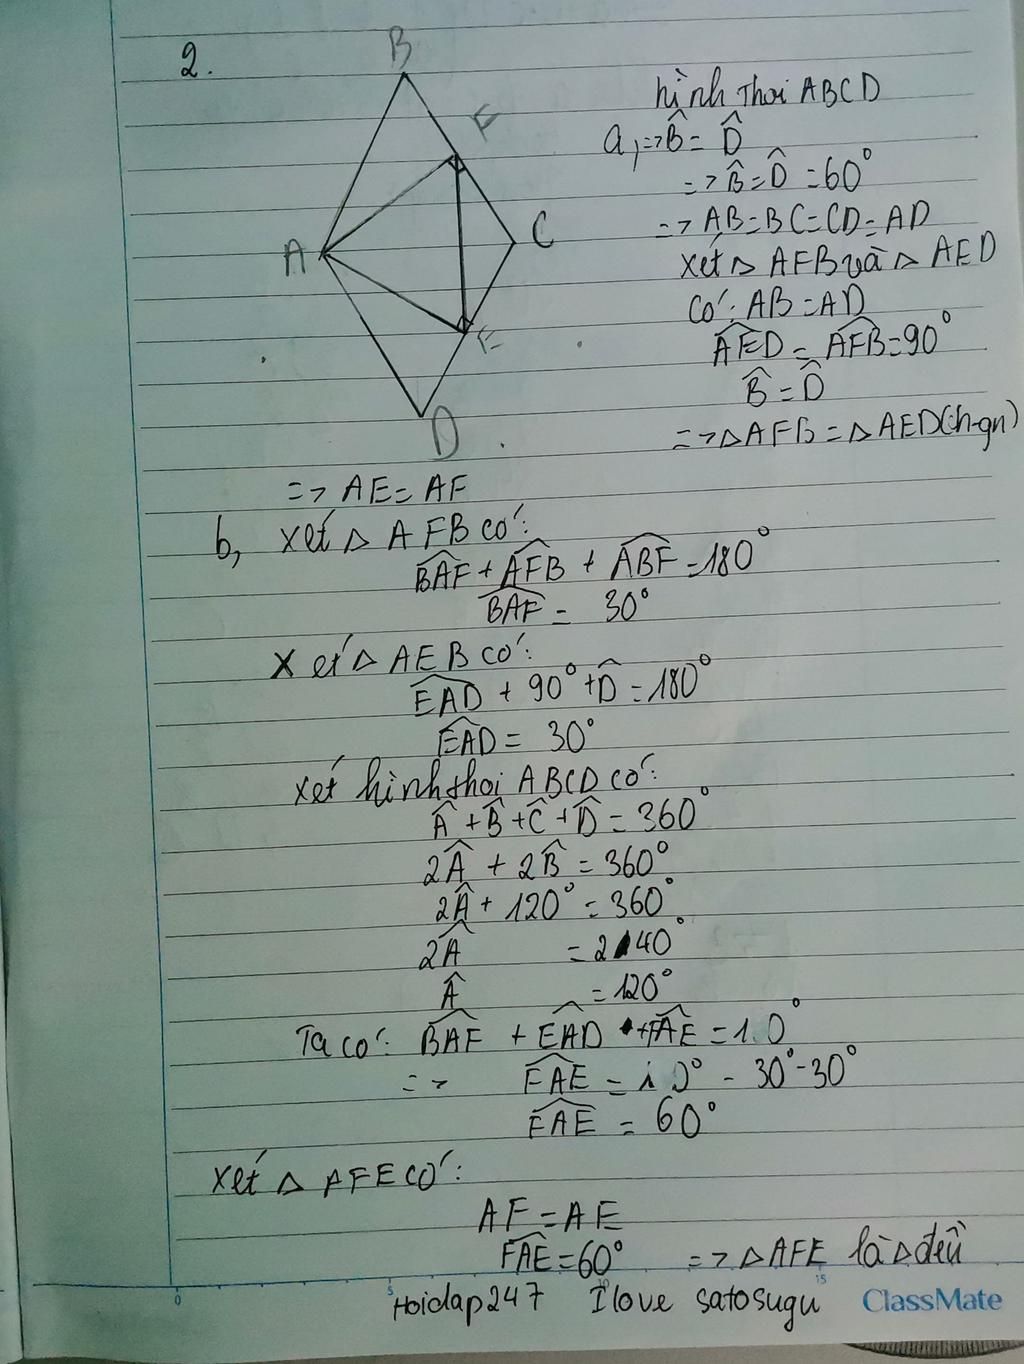 2.
B
F
A
C
E
D
hình thoi ABCD
a, => B̂ = D̂
=> B̂ = D̂ = 60°
=> AB = BC = CD = AD
Xét △ AFB và △ AED
Có: AB = AD
AED = AFB = 90°
B̂ = D̂
=> △ AFB = △ AED (ch-gn)
=> AE = AF
b, Xét △ AFB có:
BAF + AFB + ABF = 180°
BAF = 30°
Xét △ AEB có:
EAD + 90° + D̂ = 180°
EAD = 30°
Xét hình thoi ABCD có:
Â + B̂ + Ĉ + D̂ = 360°
2Â + 2B̂ = 360°
2Â + 120° = 360°
2Â = 240°
Â = 120°
Ta có: BAF + EAD + FAE = 1 0°
=> FAE = 1 0° - 30° - 30°
FAE = 60°
Xét △ AFE có:
AF = AE
FAE = 60° => △ AFE là △ đều
0 5 10 15
Hoidap247 I love satosugu ClassMate